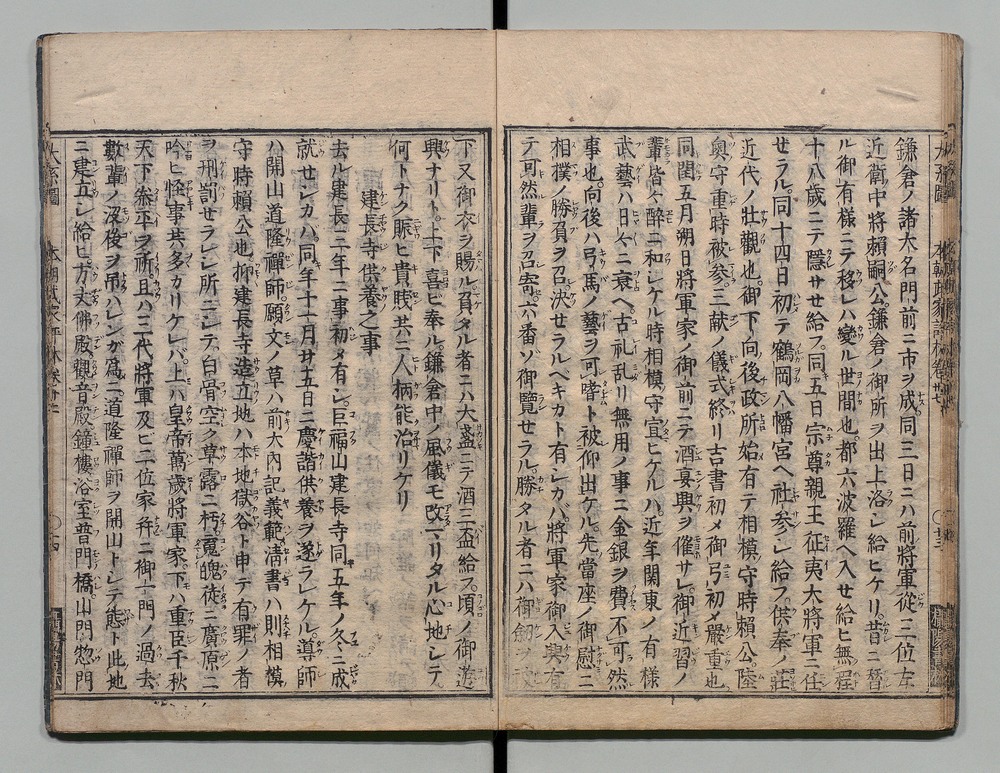 鎌倉ノ諸大名門前ニ市ヲ成同三日ニハ前將軍從三位左
近衛中將賴嗣公鎌倉ノ御所ヲ出上洛シ給ヒケリ昔ニ替
ル御有樣ニテ移レハ變ル世間也都六波羅へ入せ給ヒ無程
十八歳ニテ隱サせ給フ同五日宗尊親王征夷大將軍ニ任
せラル同十四日初テ鶴岡八幡宮へ社参シ給フ供奉ノ莊
近代ノ壯觀也御下向後政所始有テ相模守時賴公陸
奥守重時被参三献ノ儀式終リ吉書初メ御弓初メ嚴重也
同閏五月朔日將軍家ノ御前ニテ酒宴興ヲ催サレ御近習ノ
輩皆々醉ニ和シケル時相模守宣ヒケルハ近年関東ノ有樣
武藝ハ日々ニ衰へ古礼乱リ無用ノ事ニ金銀ヲ費不可然
事也向後ハ弓馬ノ藝ヲ可嗜ト被仰出ケル先當座ノ御慰ニ
相撲ノ勝負ヲ召決せラルヘキカト有シカバ將軍家御入興有
テ可然輩ヲ召寄六番ゾ御覽せラル勝タル者ニハ御劔
下又御衣ヲ賜ル負タル者ニハ大盞ニテ酒三盃給フ頃ノ御遊
興ナリト上下喜ビ奉ル鎌倉中ノ風儀モ改マリタル心地シテ
何トナク賑ヒ貴賤共ニ人柄能治リケリ
建長寺供養之事
去ル建長三年ニ事初メ有シ巨福山建長寺同五年ノ冬ニ成
就せシカハ同年十一月廿五日ニ慶讃供養ヲ遂ラレケル導師
ハ開山道隆禪師願文ノ草ハ前大内記義範淸書ハ則相模
守時賴公也抑建長寺造立地ハ本地獄谷ト申テ有罪ノ者
ヲ刑罰せラレシ所ニシテ白骨空ク草露ニ朽魂魄徒ニ廣原ニ
吟ヒ怪事共多カリケレバ上ハ皇帝萬歳將軍家下ハ重臣千秋
天下泰平ヲ祈且ハ三代將軍及ビ二位家并ニ御一門ノ過去
數輩ノ没後ヲ吊ハレンガ爲ニ道隆禪師ヲ開山トシテ態ト此地
ニ建立シ給ヒ方丈佛殿觀音殿鐘樓浴室普門橋山門惣門